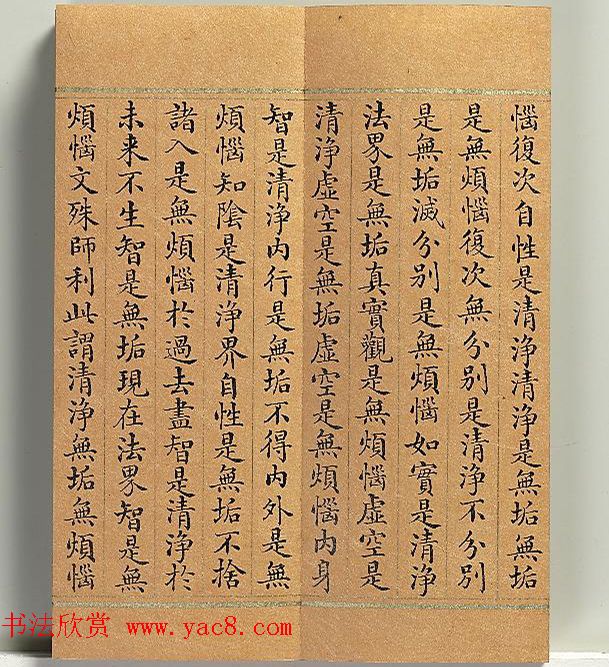 惱復次自性是清淨清淨是無垢無垢
是無煩惱復次無分別是清淨不分別
是無垢滅分別是無煩惱如實是清淨
法界是無垢真實觀是無煩惱虛空是
清淨虛空是無垢虛空是無煩惱內身
智是清淨內行是無垢不得內外是無
煩惱知陰是清淨界自性是無垢不捨
諸入是無煩惱於過去盡智是清淨於
未來不生智是無垢現在法界智是無
煩惱文殊師利此謂清淨無垢無煩惱
书法欣赏 www.yac8.com